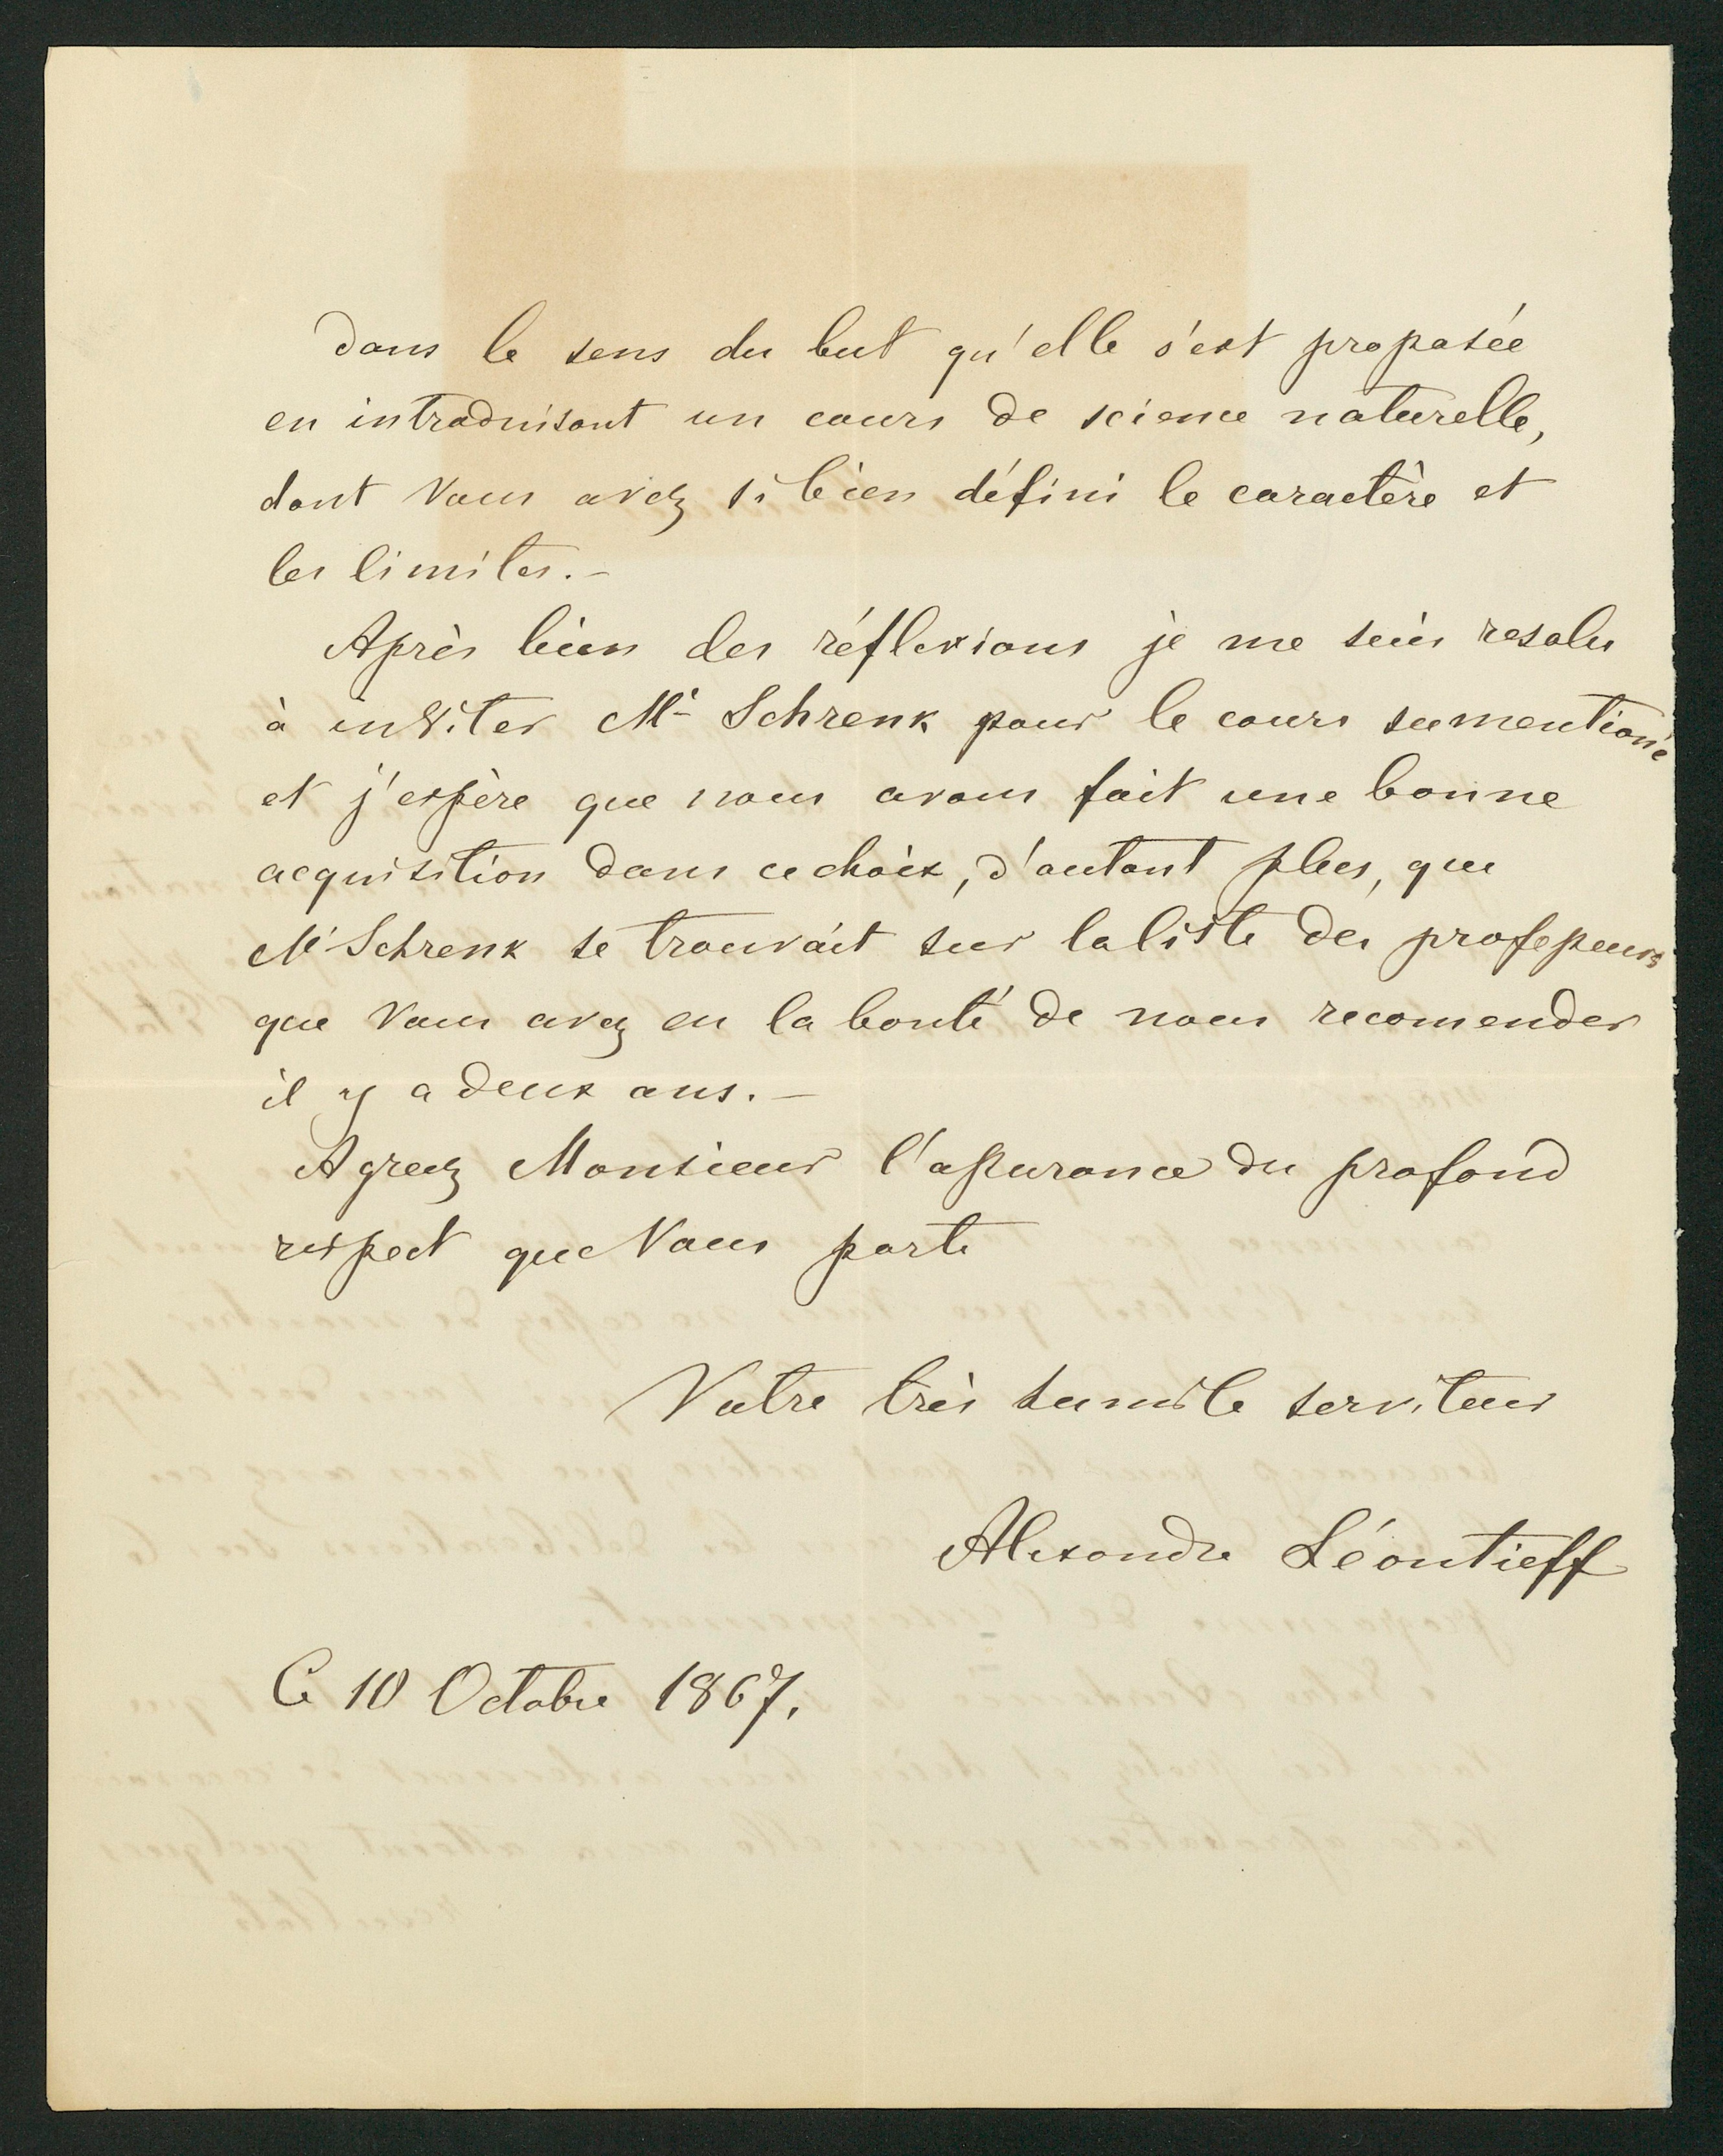 dans le sens du but qu'elle s'est proposée
en introduisant un cours de science naturelle,
dont Vous avez si bien défini le caractère et
les limites.–
Après bien des réflexions je me suis resolu
à inviter Mr Schrenk pour le cours sumentioné
et j'espère que nous avons fait une bonne
acquisition dans ce choix, d'autant plus, que
Mr Schrenk se trouvait sur la liste des professeurs
que Vous avez eu la bonté de nous recomender
il y a deux ans.–
Agreez Monsieur l'assurance du profond
respect que Vous porte
Votre très humble serviteur
Alexandre Léontieff
Ce 10 Octobre 1867.